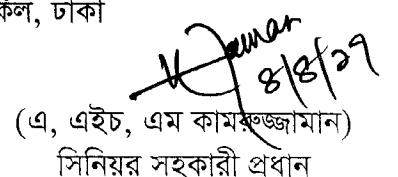 কল, ঢাকা
৪/৪/২৭
(এ, এইচ, এম কামরুজ্জামান)
সিনিয়র সহকারী প্রধান